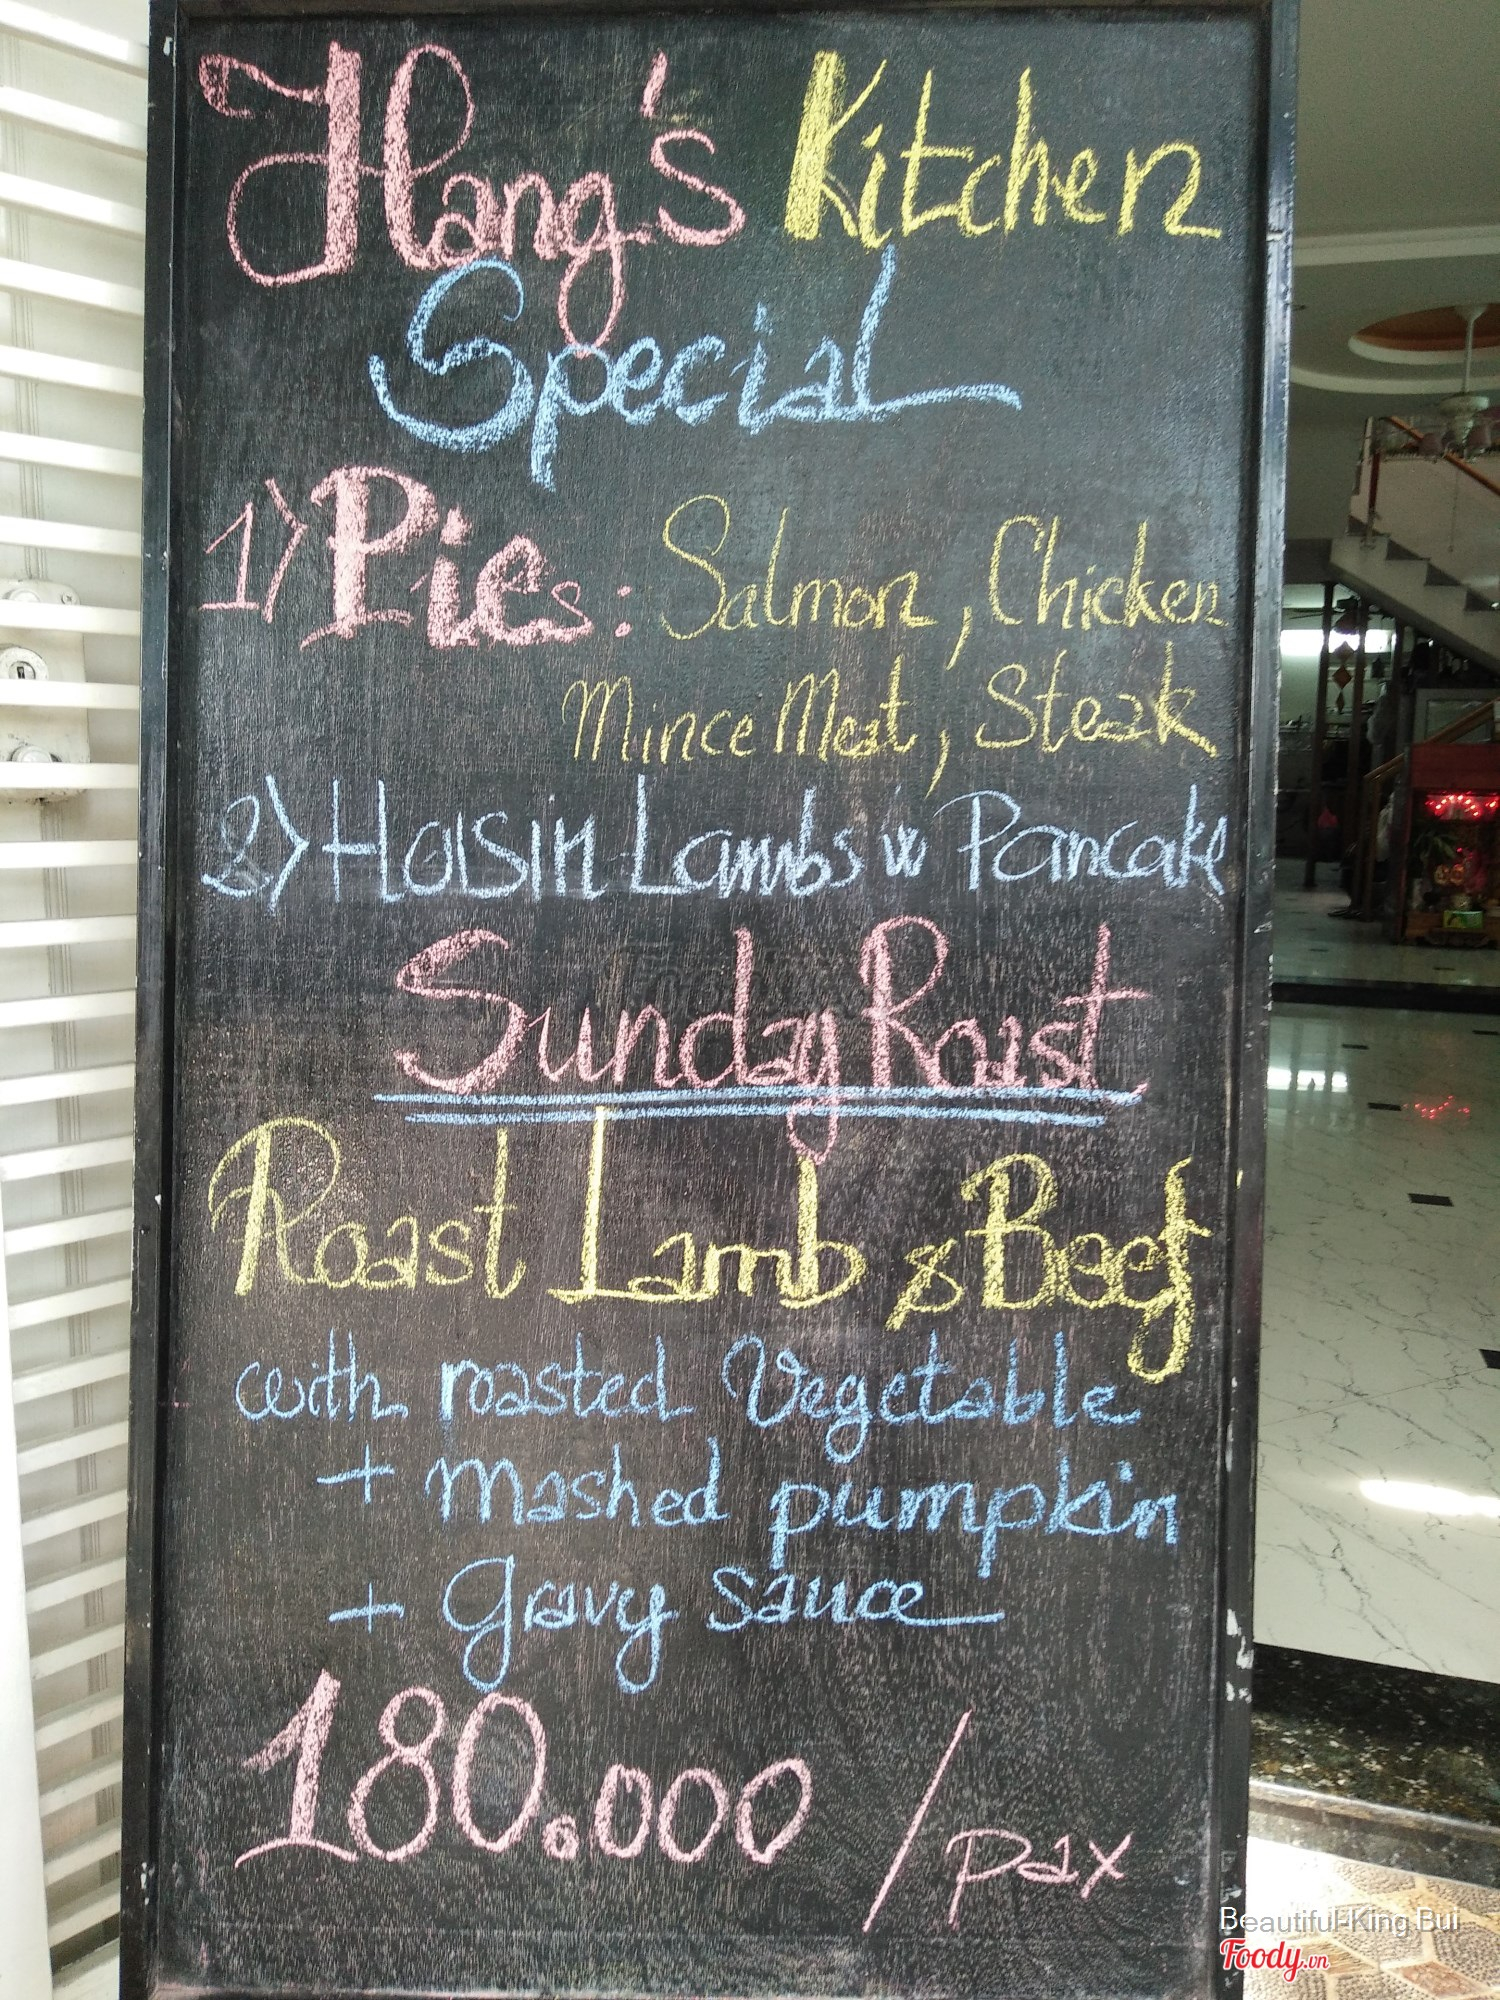 Hang's Kitchen
Special
1) Pies: Salmon, Chicken
Mince Meat, Steak
2) Hoisin Lambs w Pancake
Sunday Roast
Roast Lamb & Beef
with roasted Vegetable
+ mashed pumpkin
+ gravy sauce
180.000 / pax
Beautiful-King Bui
Foody.vn